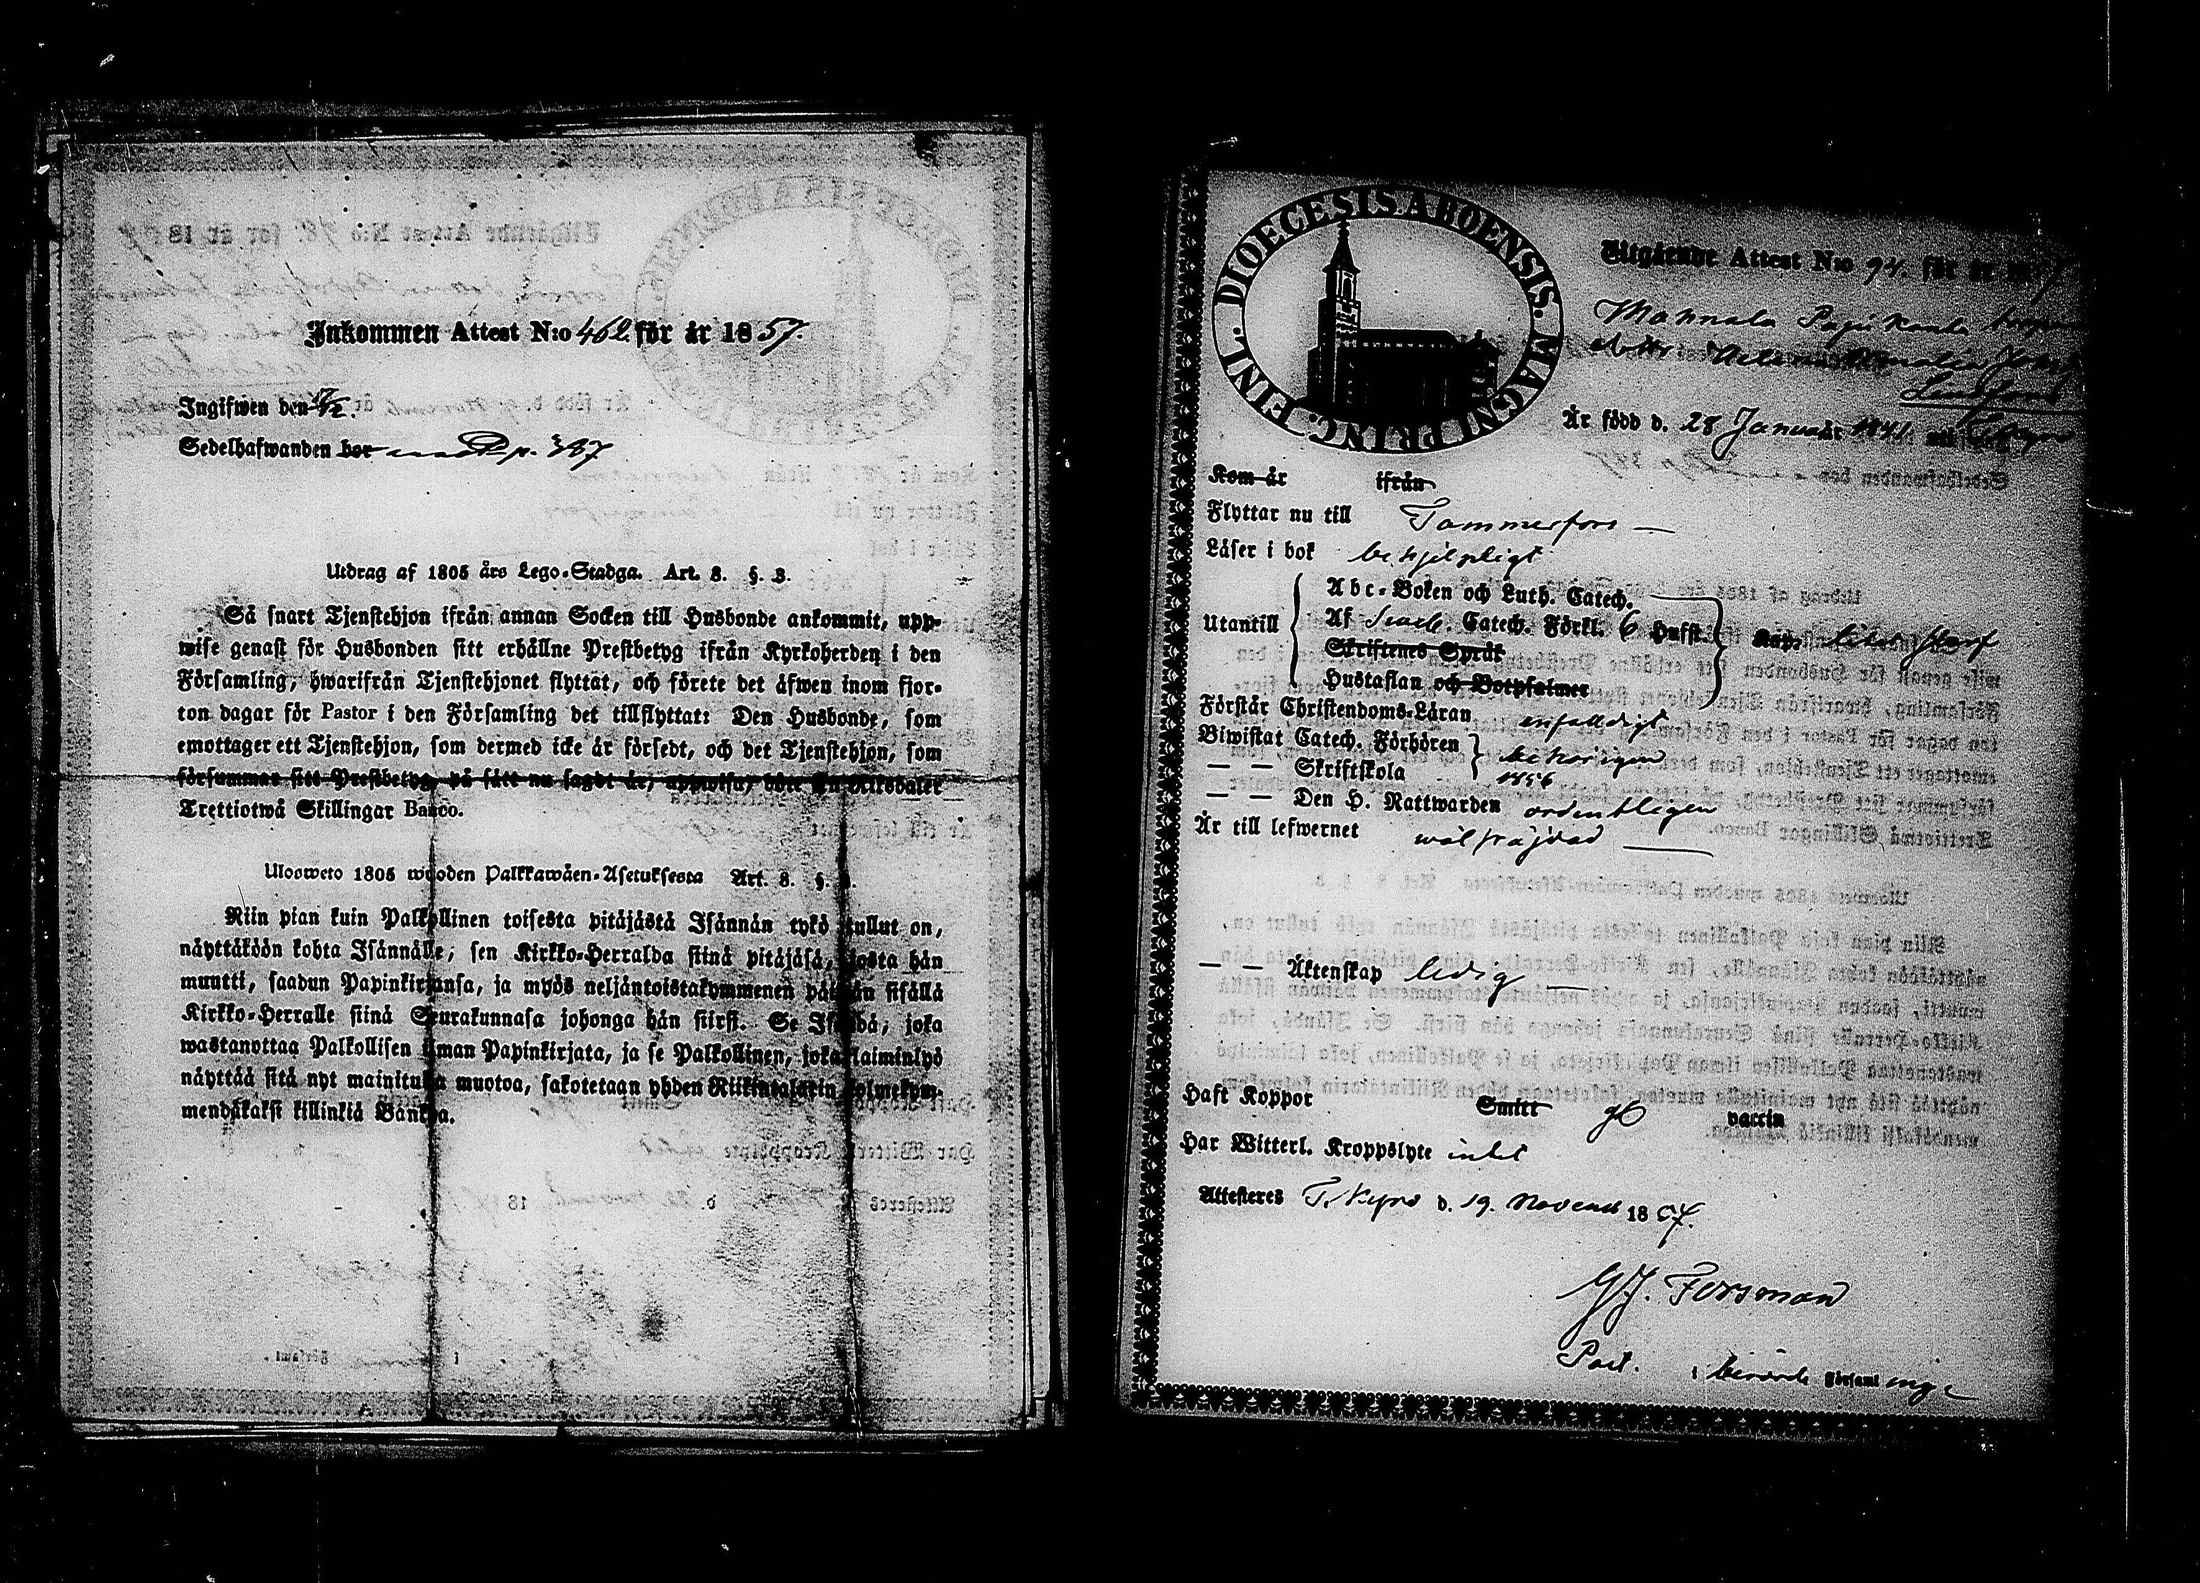 Inkommen Attest N:o 462. för år 1857.
Ingifwen den 17/12.
Sedelhafwanden bor p. 387
Utdrag af 1805 års Lego-Stadga. Art. 8. §. 3.
Så snart Tjenstehjon ifrån annan Socken till Husbonde ankommit, upp-
wise genast för Husbonden sitt erhållne Prestbetyg ifrån Kyrkoherden i den
Församling, hwarifrån Tjenstehjonet flyttat, och förete det äfwen inom fjor-
ton dagar för Pastor i den Församling det tillflyttat: Den Husbonde, som
emottager ett Tjenstehjon, som dermed icke är försedt, och det Tjenstehjon, som
försummar sitt Prestbetyg, på sätt nu sagdt är, uppwisa, böte En Riksdaler
Trettiotwå Skillingar Banco.
Ulosweto 1805 wuoden Palkkawäen-Asetuksesta Art. 8. §.
Niin pian kuin Palkollinen toisesta pitäjästä Isännän tykö tullut on,
näyttäköön kohta Isännälle, sen Kirkko-Herralda siinä pitäjäsä, josta hän
muutti, saadun Papinkirjansa, ja myös neljäntoistakymmenen päiwän sisällä
Kirkko-Herralle siinä Seurakunnasa johonga hän siirsi. Se Isändä, joka
wastanottaa Palkollisen ilman Papinkirjata, ja se Palkollinen, joka laiminlyö
näyttää sitä nyt mainitulla muotoa, sakotetaan yhden Riikintalarin kolmekym-
mendäkaksi killinkiä Bankoa.
DIOECESIS ABOENSIS. MAGNI PRINC. FINL.
Utgående Attest N:o 94. för år 1857
Mahnala Pajukanta
dottr:
Är född d. 28 Januari 1841. uti
Kom år ifrån
Flyttar nu till Tammerfors —
Läser i bok behjelpligt
Utantill
Abc-Boken och Luth. Catech.
Af Svebi. Catech. Förkl. 6 Hufst.
Skriftenes Språk
Hustaflan och Botpsalmer
Förstår Christendoms-Läran enfalldigt
Biwistat Catech. Förhören behörigen
— — Skriftskola 1856
— — Den H. Nattwarden ordentligen
Är till lefwernet wälfräjdad —
— — Äktenskap ledig —
Haft Koppor Smitt gl vaccin
Har Witterl. Kroppslyte intet
Attesteres T. Kyro d. 19. Novemb 1857.
G. J. Forsman
Past. i berörde Församlinge